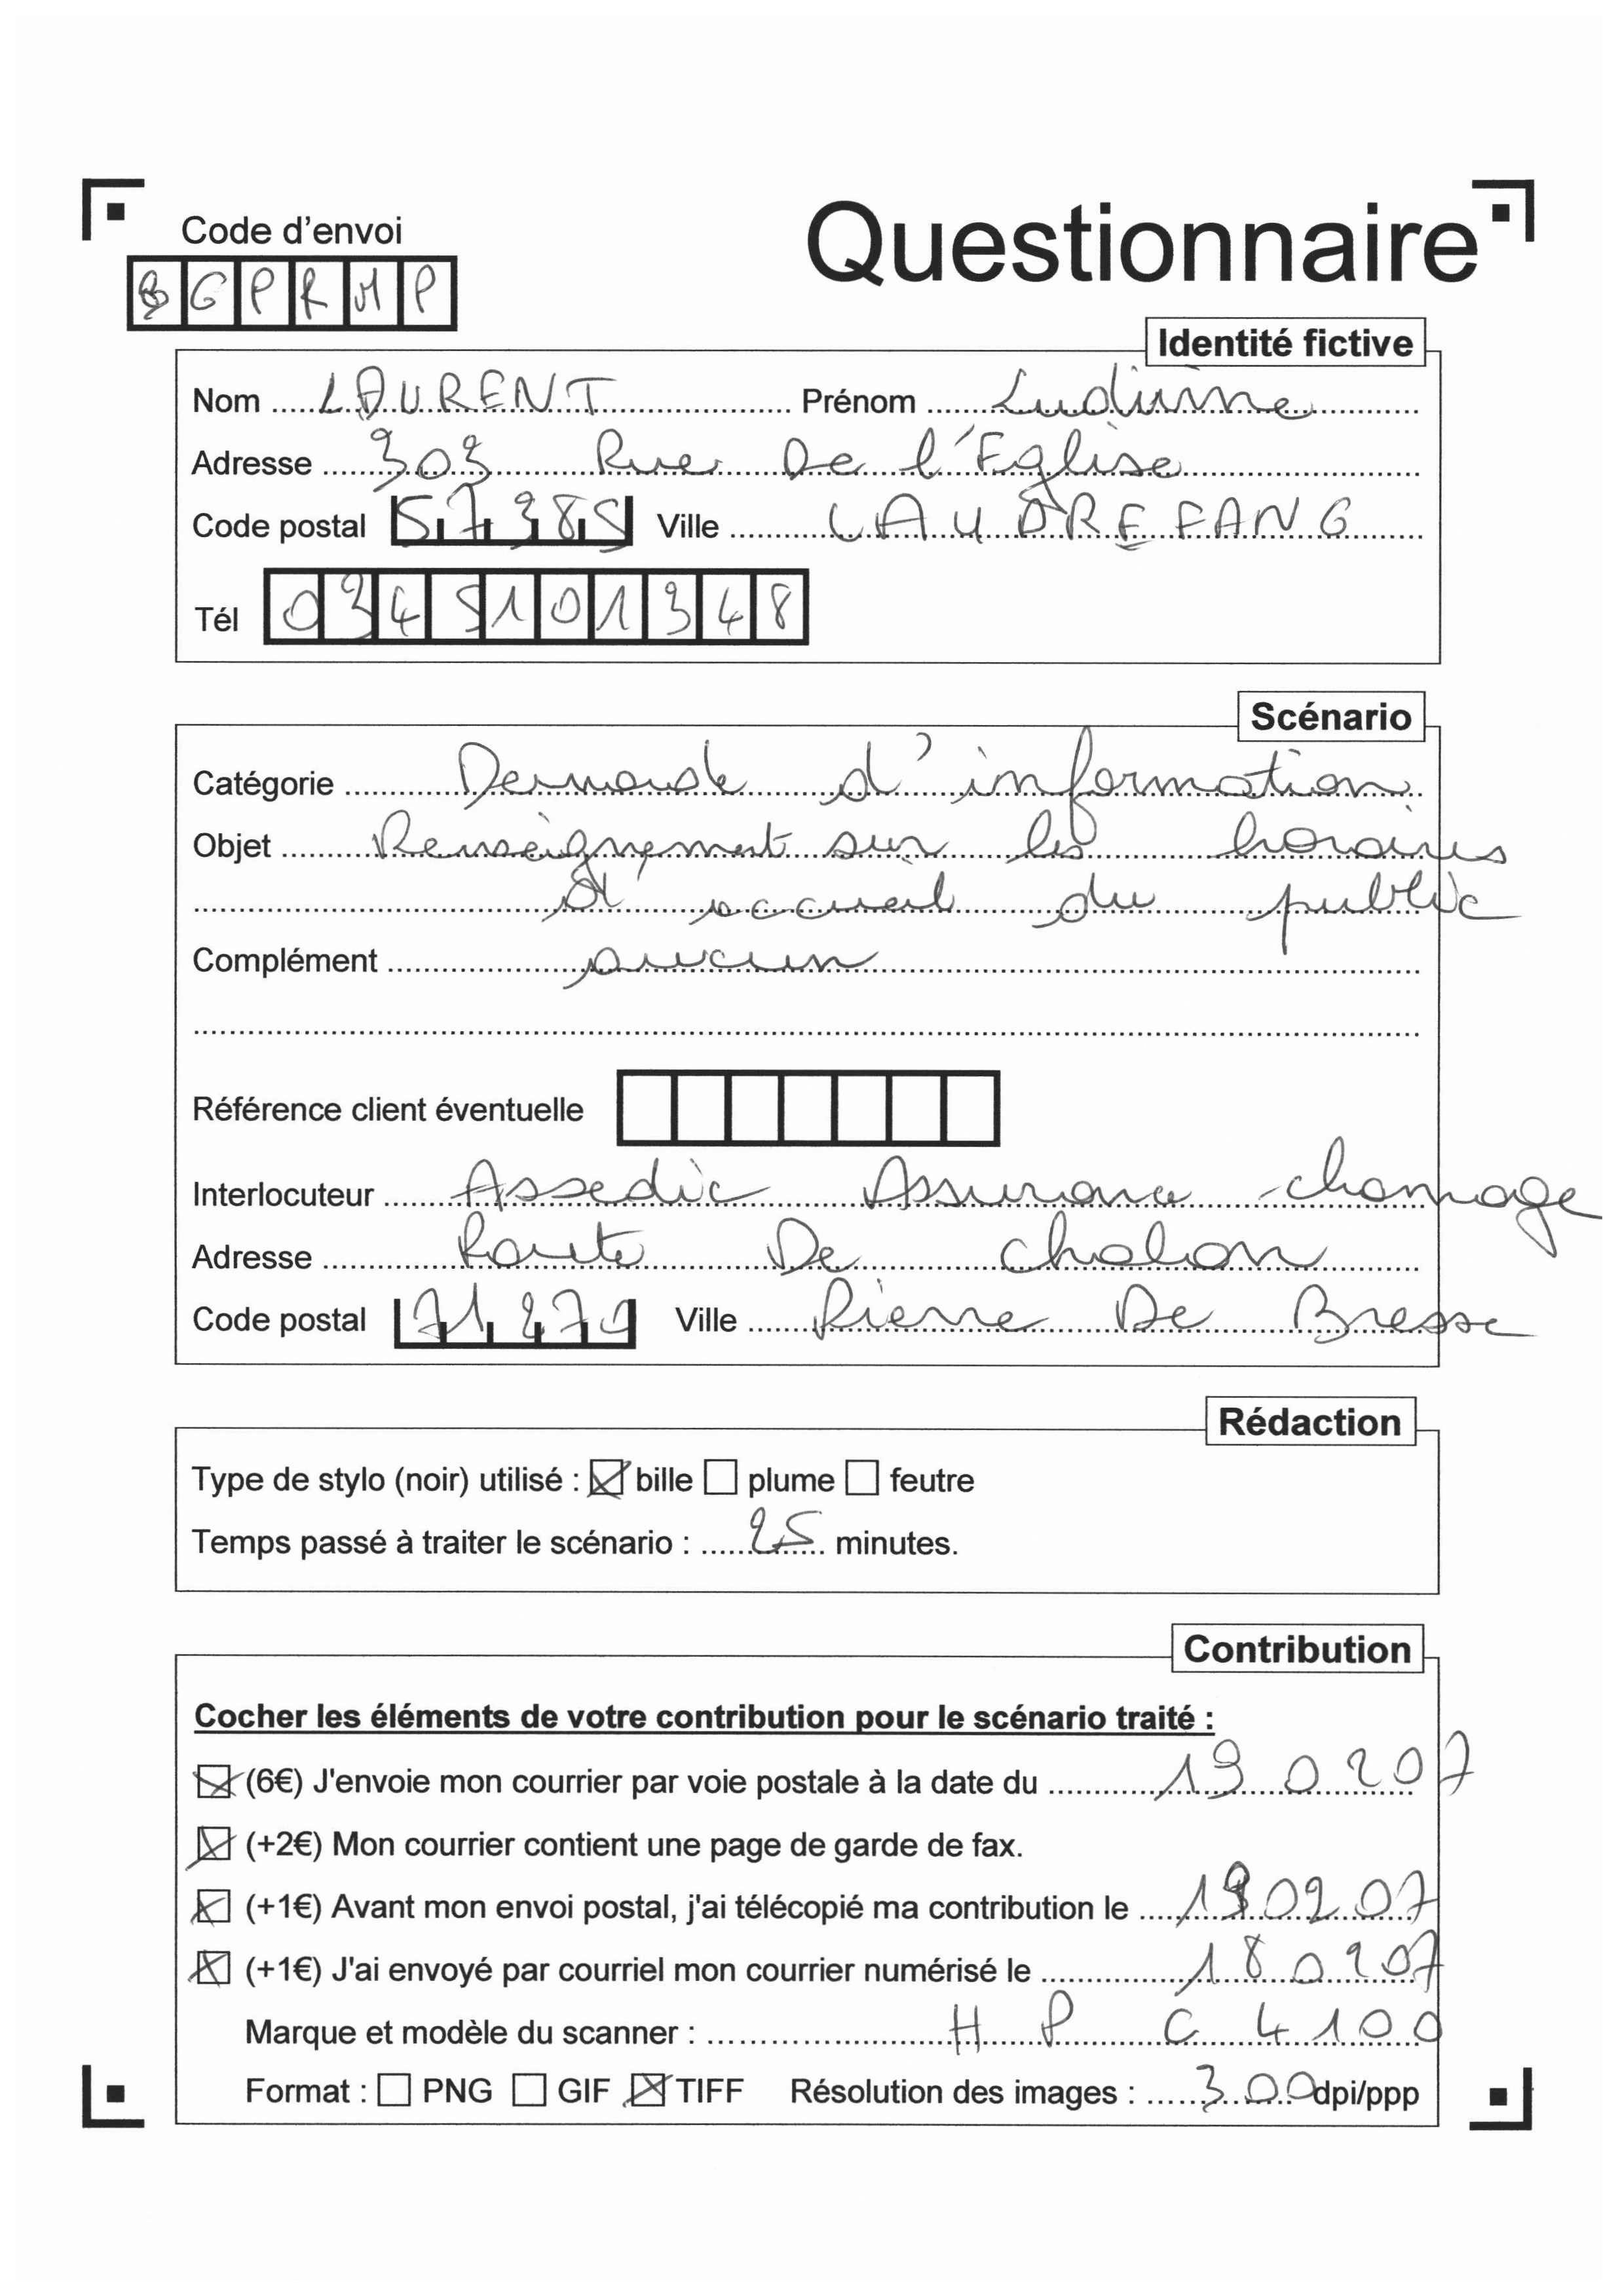 Code d'envoi
Questionnaire
BGPRMP
Identité fictive
Nom LAURENT Prénom Ludivine
Adresse 303 Rue De l'Eglise
Code postal 57385 Ville LAUDREFANG
Tél 0345101348
Scénario
Catégorie Demande d'information
Objet Renseignement sur les horaires
d'accueil du public
Complément aucun
Référence client éventuelle
Interlocuteur Assedic Assurance chomage
Adresse Route De chalon
Code postal 71270 Ville Pierre De Bresse
Rédaction
Type de stylo (noir) utilisé : bille plume feutre
Temps passé à traiter le scénario : 25 minutes.
Contribution
Cocher les éléments de votre contribution pour le scénario traité :
(6€) J'envoie mon courrier par voie postale à la date du 190207
(+2€) Mon courrier contient une page de garde de fax.
(+1€) Avant mon envoi postal, j'ai télécopié ma contribution le 180207
(+1€) J'ai envoyé par courriel mon courrier numérisé le 180207
Marque et modèle du scanner : HP C4100
Format : PNG GIF TIFF Résolution des images : 300 dpi/ppp